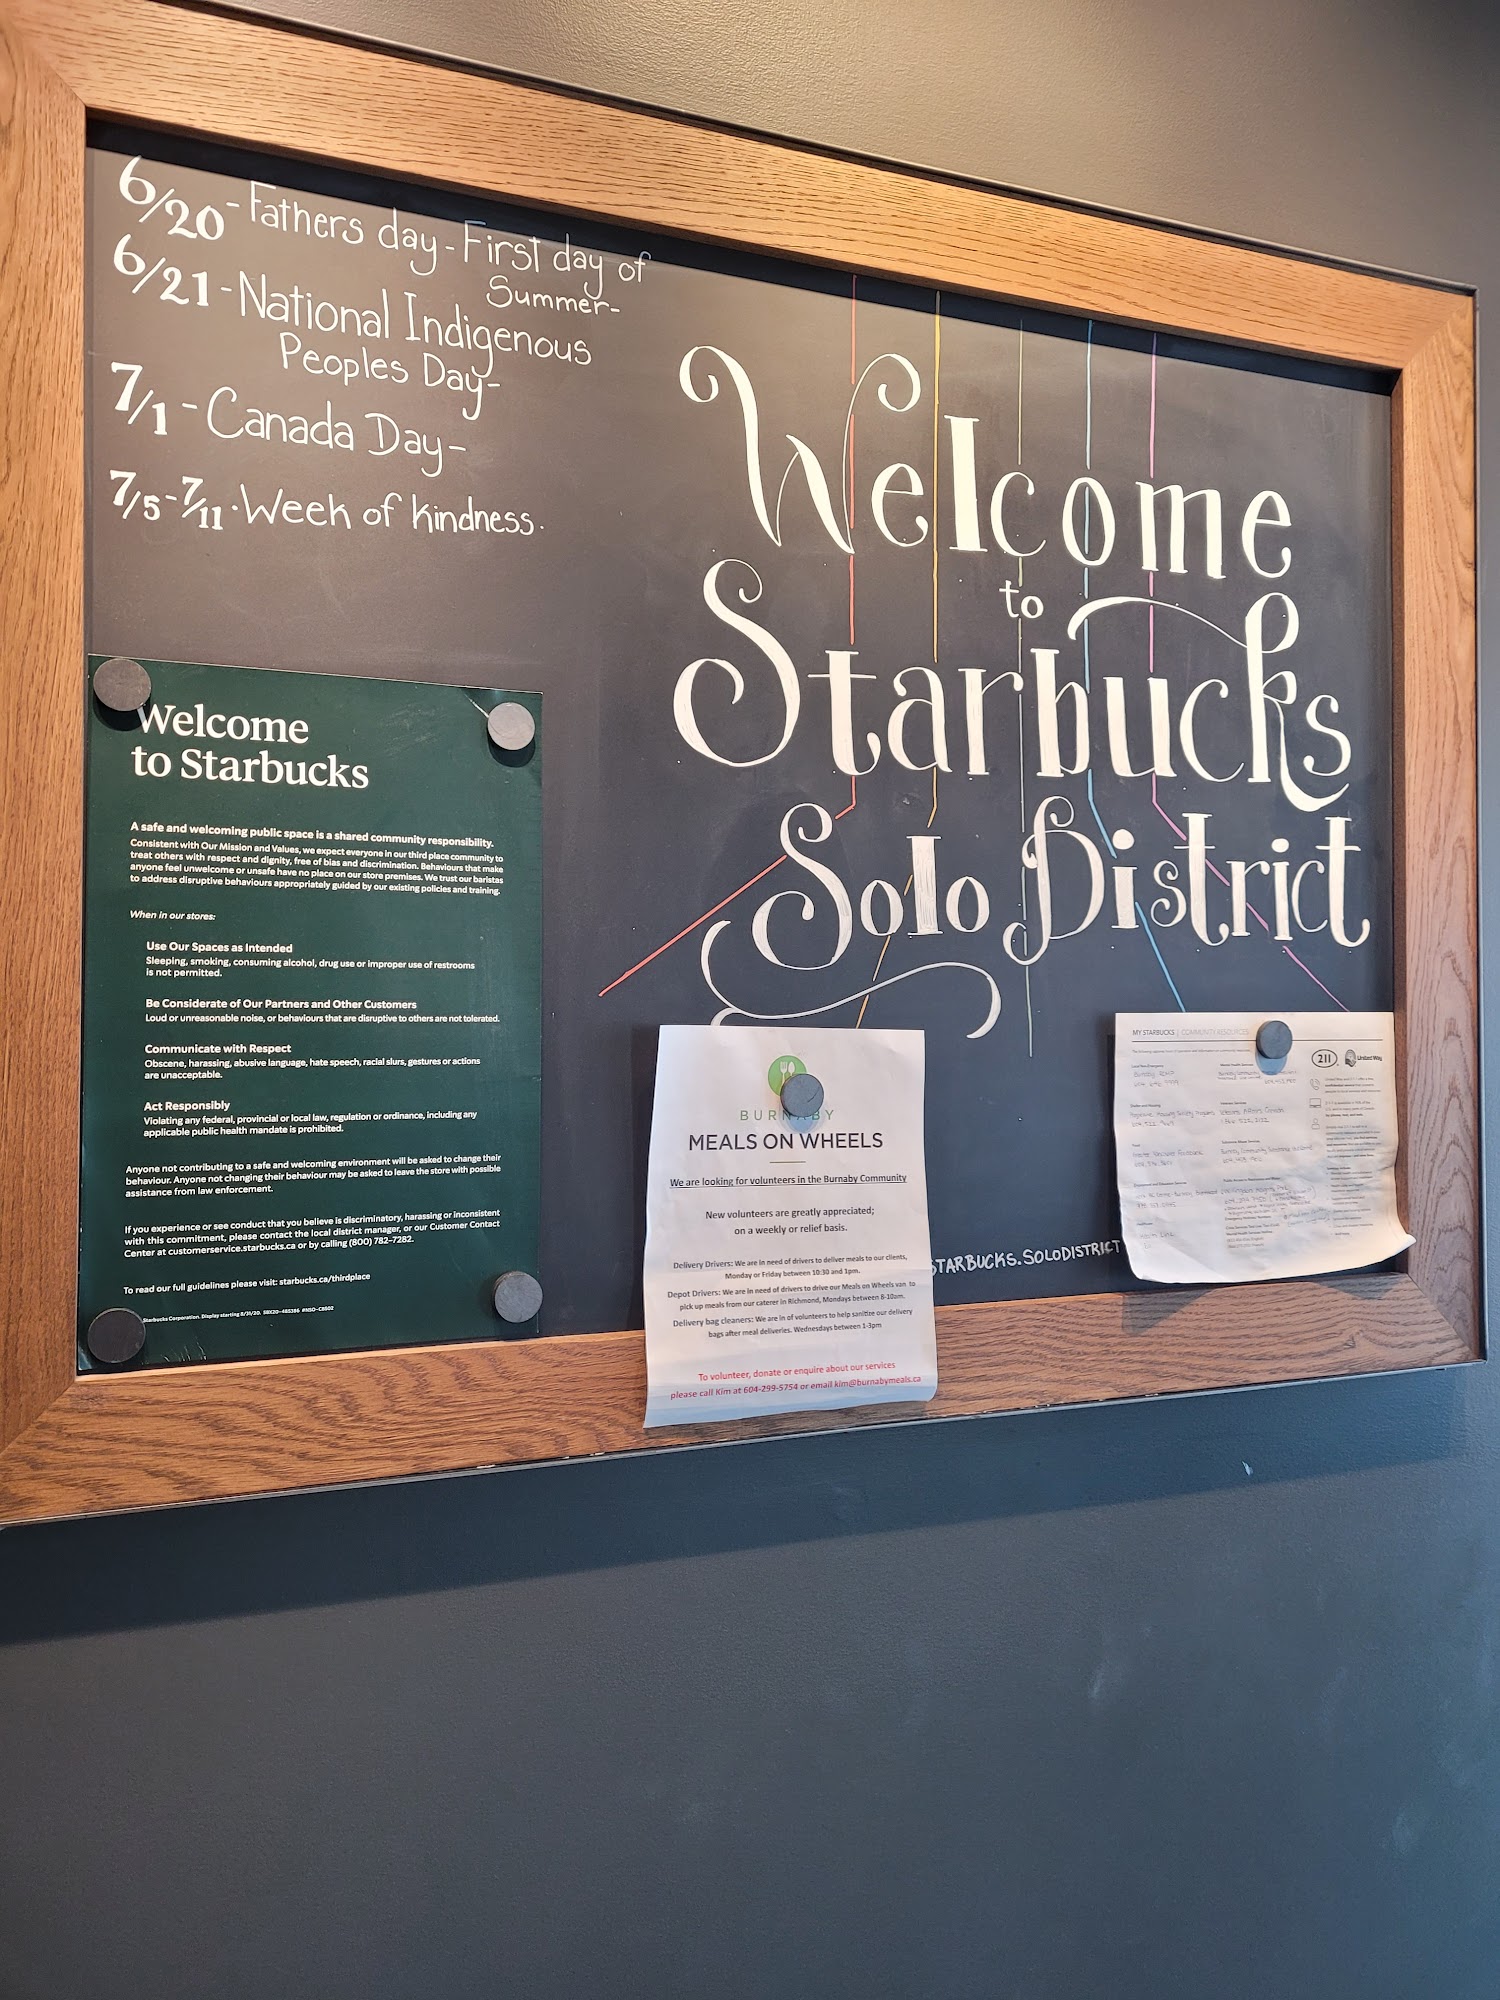 6/20 - Fathers day - First day of
Summer -
6/21 - National Indigenous
Peoples Day -
7/1 - Canada Day -
7/5 - 7/11 · Week of kindness.
Welcome
to
Starbucks
Solo District
Welcome
to Starbucks
A safe and welcoming public space is a shared community responsibility.
Consistent with Our Mission and Values, we expect everyone in our third place community to
treat others with respect and dignity, free of bias and discrimination. Behaviours that make
anyone feel unwelcome or unsafe have no place on our store premises. We trust our baristas
to address disruptive behaviours appropriately guided by our existing policies and training.
When in our stores:
Use Our Spaces as Intended
Sleeping, smoking, consuming alcohol, drug use or improper use of restrooms
is not permitted.
Be Considerate of Our Partners and Other Customers
Loud or unreasonable noise, or behaviours that are disruptive to others are not tolerated.
Communicate with Respect
Obscene, harassing, abusive language, hate speech, racial slurs, gestures or actions
are unacceptable.
Act Responsibly
Violating any federal, provincial or local law, regulation or ordinance, including any
applicable public health mandate is prohibited.
Anyone not contributing to a safe and welcoming environment will be asked to change their
behaviour. Anyone not changing their behaviour may be asked to leave the store with possible
assistance from law enforcement.
If you experience or see conduct that you believe is discriminatory, harassing or inconsistent
with this commitment, please contact the local district manager, or our Customer Contact
Center at customerservice.starbucks.ca or by calling (800) 782-7282.
To read our full guidelines please visit: starbucks.ca/thirdplace
Starbucks Corporation. Display starting 8/31/20.
BURNABY
MEALS ON WHEELS
We are looking for volunteers in the Burnaby Community
New volunteers are greatly appreciated;
on a weekly or relief basis.
Delivery Drivers: We are in need of drivers to deliver meals to our clients,
Monday or Friday between 10:30 and 1pm.
Depot Drivers: We are in need of drivers to drive our Meals on Wheels van to
pick up meals from our caterer in Richmond, Mondays between 8-10am.
Delivery bag cleaners: We are in of volunteers to help sanitize our delivery
bags after meal deliveries. Wednesdays between 1-3pm
To volunteer, donate or enquire about our services
please call Kim at 604-299-5754 or email kim@burnabymeals.ca
STARBUCKS.SOLODISTRICT
MY STARBUCKS | COMMUNITY RESOURCES
211 United Way